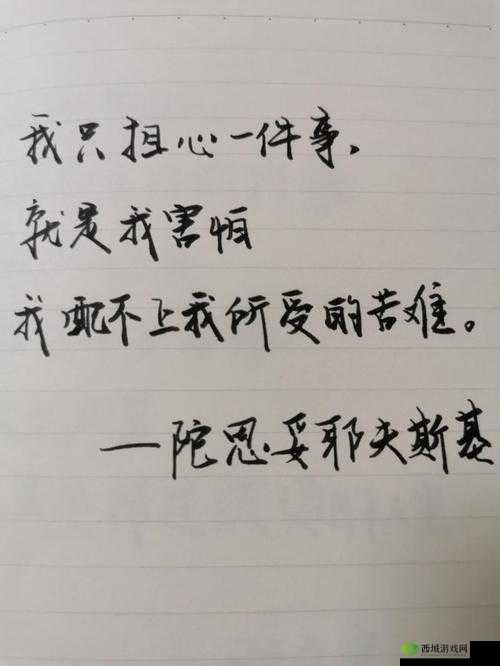 我只担心一件事,
就是我害怕
我配不上我所受的苦难。
—陀思妥耶夫斯基
西域游戏网